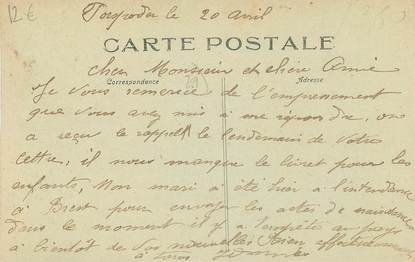 12 €
le 20 avril
CARTE POSTALE
Correspondance Adresse
Cher Monsieur et chère Amie
Je vous remercie de l'empressement
que vous avez mis à me répondre, on
a reçu le rappel le lendemain de votre
lettre, il nous manque le livret pour les
enfants, Mon mari a été hier à l'intendance
à Brest pour envoyer les actes de naissances
dans le moment il y a au pays
à bientôt de vos nouvelles bien affectueusement
à vous